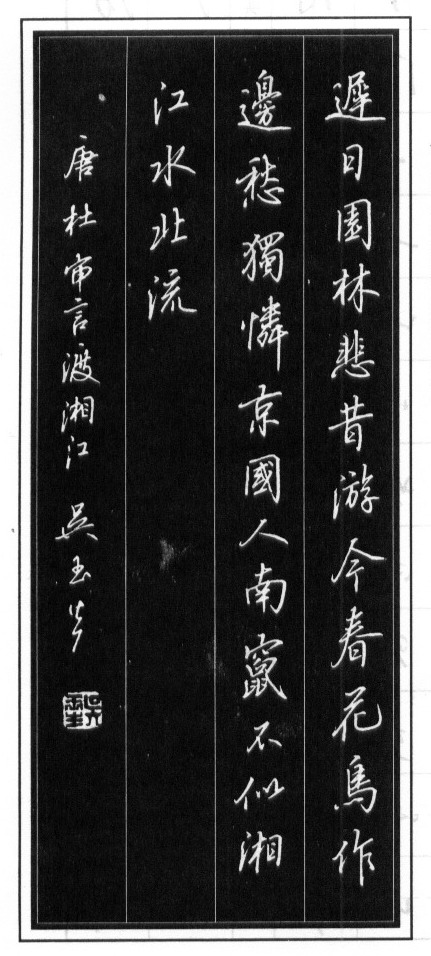 遲日園林悲昔游今春花鳥作
邊愁獨憐京國人南竄不似湘
江水北流
唐杜审言渡湘江 吴玉生